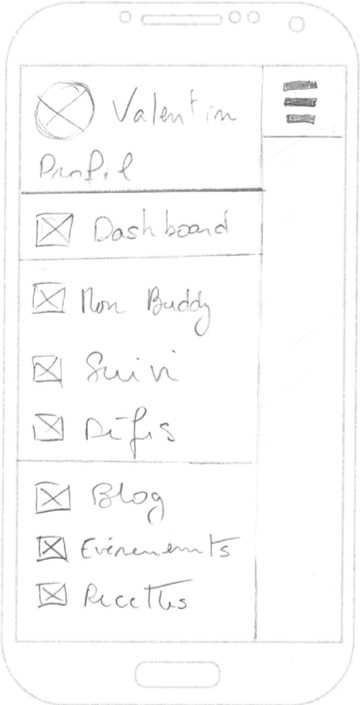 Valentin
Profil
Dashboard
Mon Buddy
Suivi
Défis
Blog
Evénements
Recettes